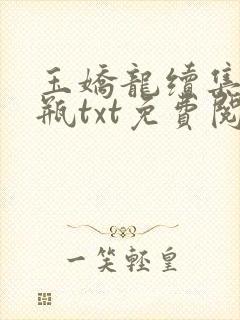 玉嬌龍續集
瓶txt免費閱
一笑輕皇